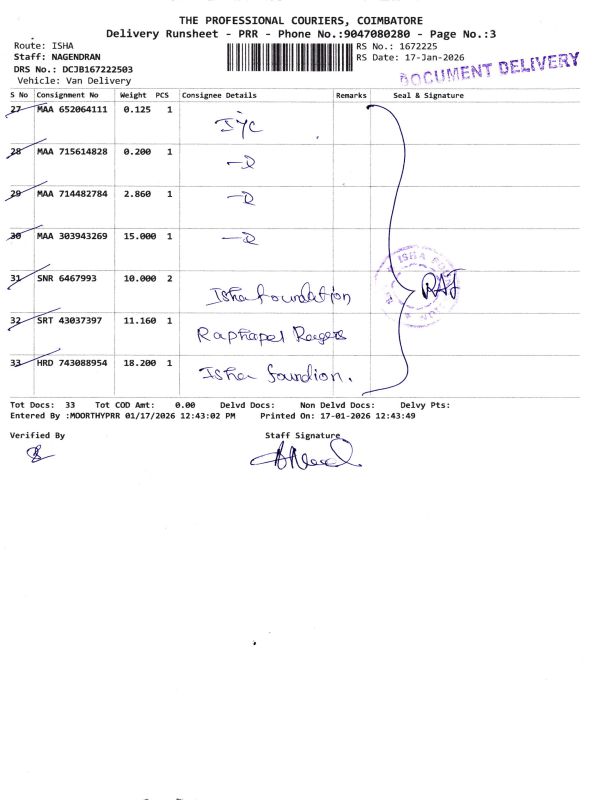 THE PROFESSIONAL COURIERS, COIMBATORE
Delivery Runsheet - PRR - Phone No.:9047080280 - Page No.:3
Route: ISHA
Staff: NAGENDRAN
DRS No.: DCJB167222503
Vehicle: Van Delivery
RS No.: 1672225
RS Date: 17-Jan-2026
DOCUMENT DELIVERY
S No Consignment No Weight PCS Consignee Details Remarks Seal & Signature
27 MAA 652064111 0.125 1 IYC
28 MAA 715614828 0.200 1
29 MAA 714482784 2.860 1
30 MAA 303943269 15.000 1
31 SNR 6467993 10.000 2 Isha foundation
32 SRT 43037397 11.160 1
33 HRD 743088954 18.200 1 Isha foundion.
ISHA
RAJ
Tot Docs: 33 Tot COD Amt: 0.00 Delvd Docs: Non Delvd Docs: Delvy Pts:
Entered By :MOORTHYPRR 01/17/2026 12:43:02 PM Printed On: 17-01-2026 12:43:49
Verified By Staff Signature